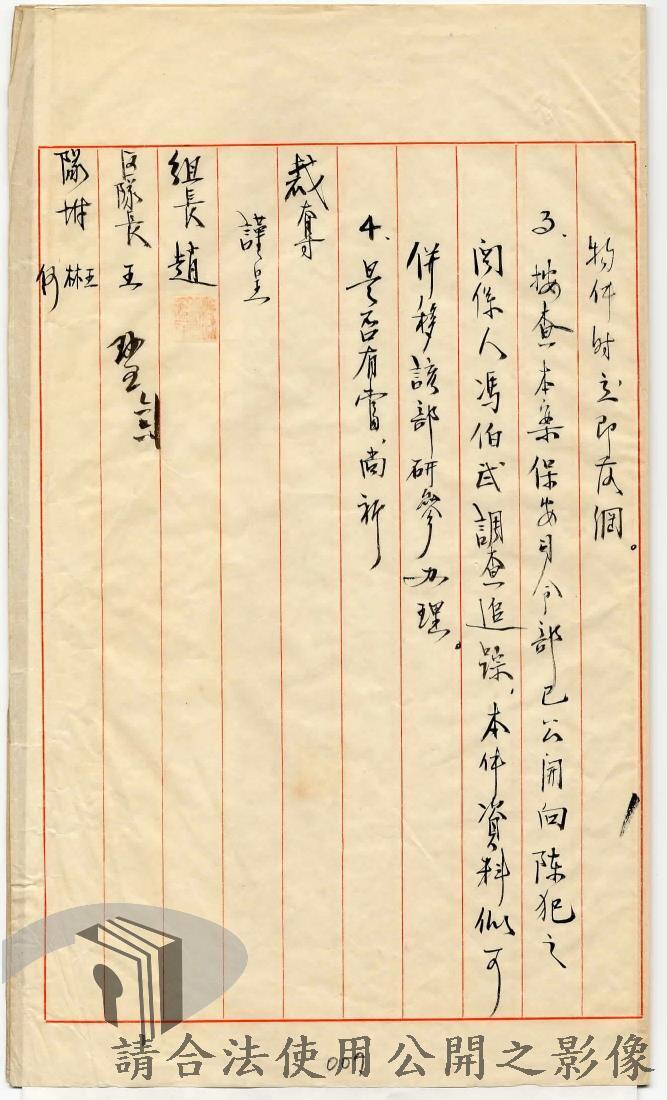 物件时立即落網。
3、按查本案保安司令部已公開向陈犯之
関係人馮伯武調查追踪，本件資料似可
併移該部研參办理。
4、是否有當，尚祈
裁奪
謹呈
組長 趙
区隊長 王
隊坿 王
林
何
007
請合法使用公開之影像